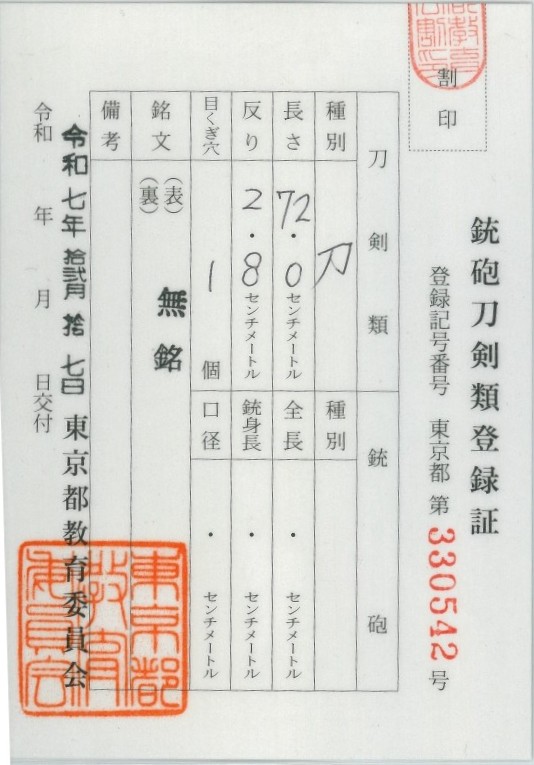 銃砲刀剣類登録証
割印
登録記号番号 東京都 第 330542 号
刀剣類
種別 刀
長さ 72.0 センチメートル
反り 2.8 センチメートル
目くぎ穴 1 個
銘文 (表) 無銘
(裏)
備考
銃砲
種別
全長 . センチメートル
銃身長 . センチメートル
口径 . センチメートル
令和七年拾弐月拾七日
令和 年 月 日交付
東京都教育委員会
東京都
教育
委員会